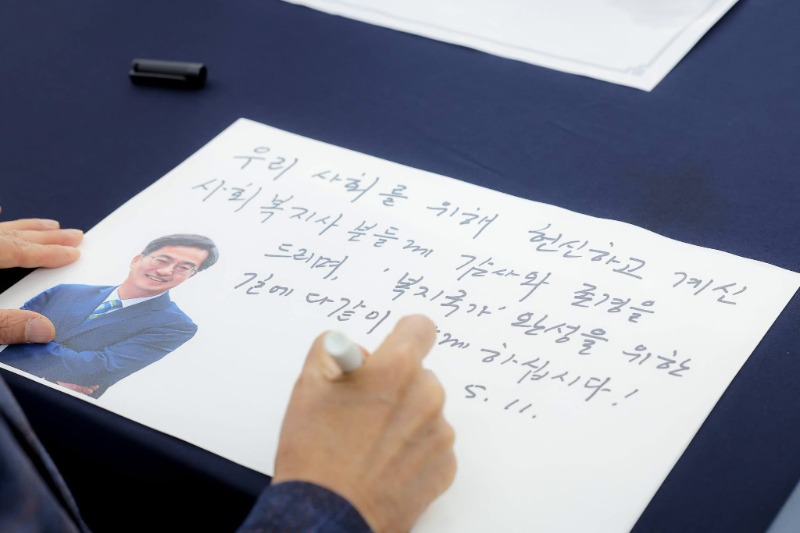 우리 사회를 위해 헌신하고 계신
사회복지사 분들께 감사와 존경을
드리며, '복지국가' 완성을 위한
길에 다같이 하십시다!
5. 11.